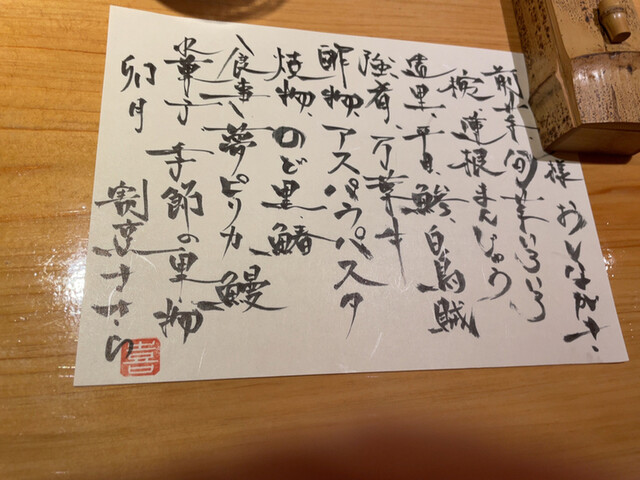 様 おしながき
前菜 旬菜いろいろ
椀 蓮根まんじゅう
造里 平目、鯵、白烏賊
強肴 万葉牛
酢物、アスパラパスタ
焼物、のど黒、鰆
食事 夢ピリカ 鰻
水菓子 季節の果物
卯月 割烹ささら
喜